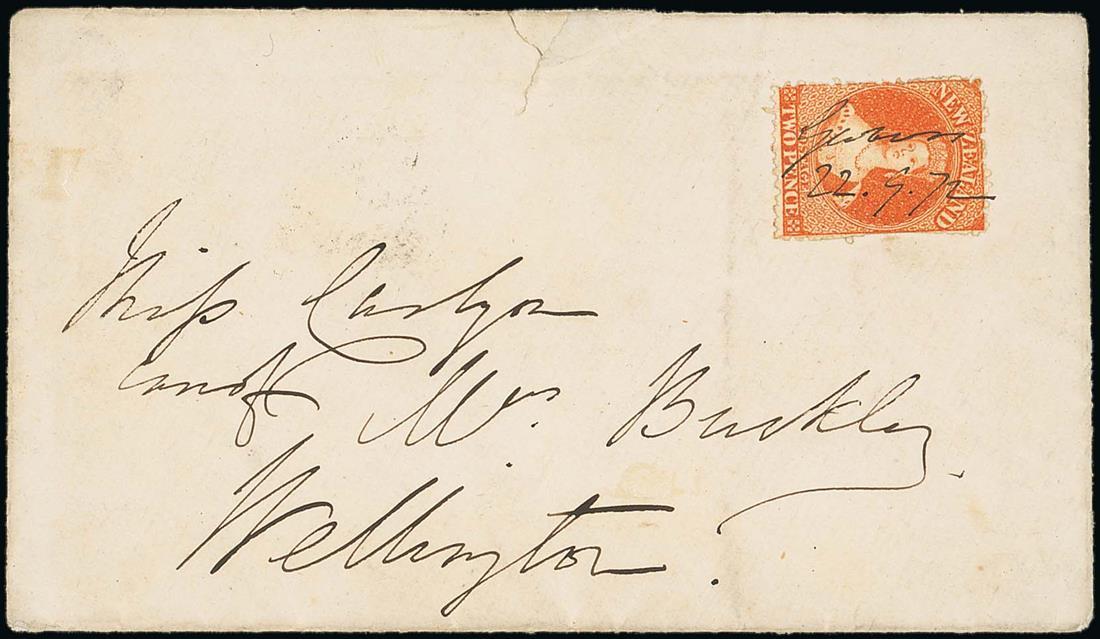 NEW ZEALAND
POSTAGE
TWO PENCE
22.9.72
Miss Carlyon
care of Mrs Buckley
Wellington.